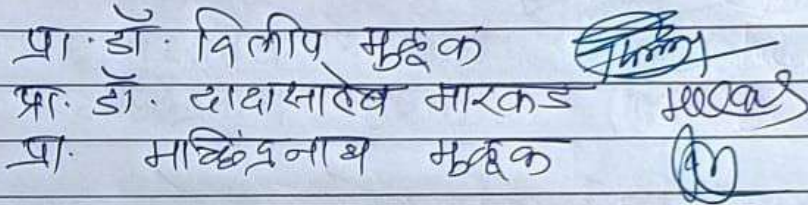 प्रा. डॉ. दिलीप मुळूक
प्रा. डॉ. दादासाहेब मारकड
प्रा. मच्छिंद्रनाथ मुळूक